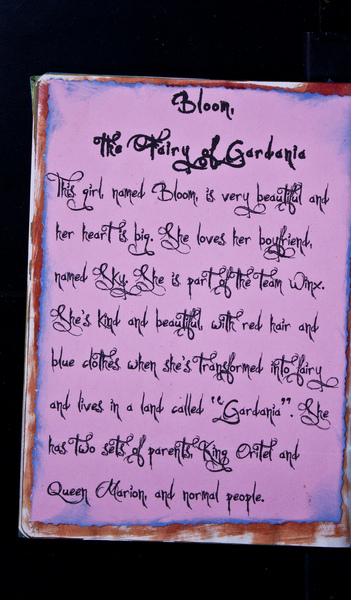 Bloom,
The Fairy of Gardania
This girl, named Bloom, is very beautiful and
her heart is big. She loves her boyfriend,
named Sky. She is part of the team Winx.
She's kind and beautiful, with red hair and
blue clothes when she's transformed into fairy
and lives in a land called "Gardania". She
has two sets of parents, King Oritel and
Queen Marion, and normal people.